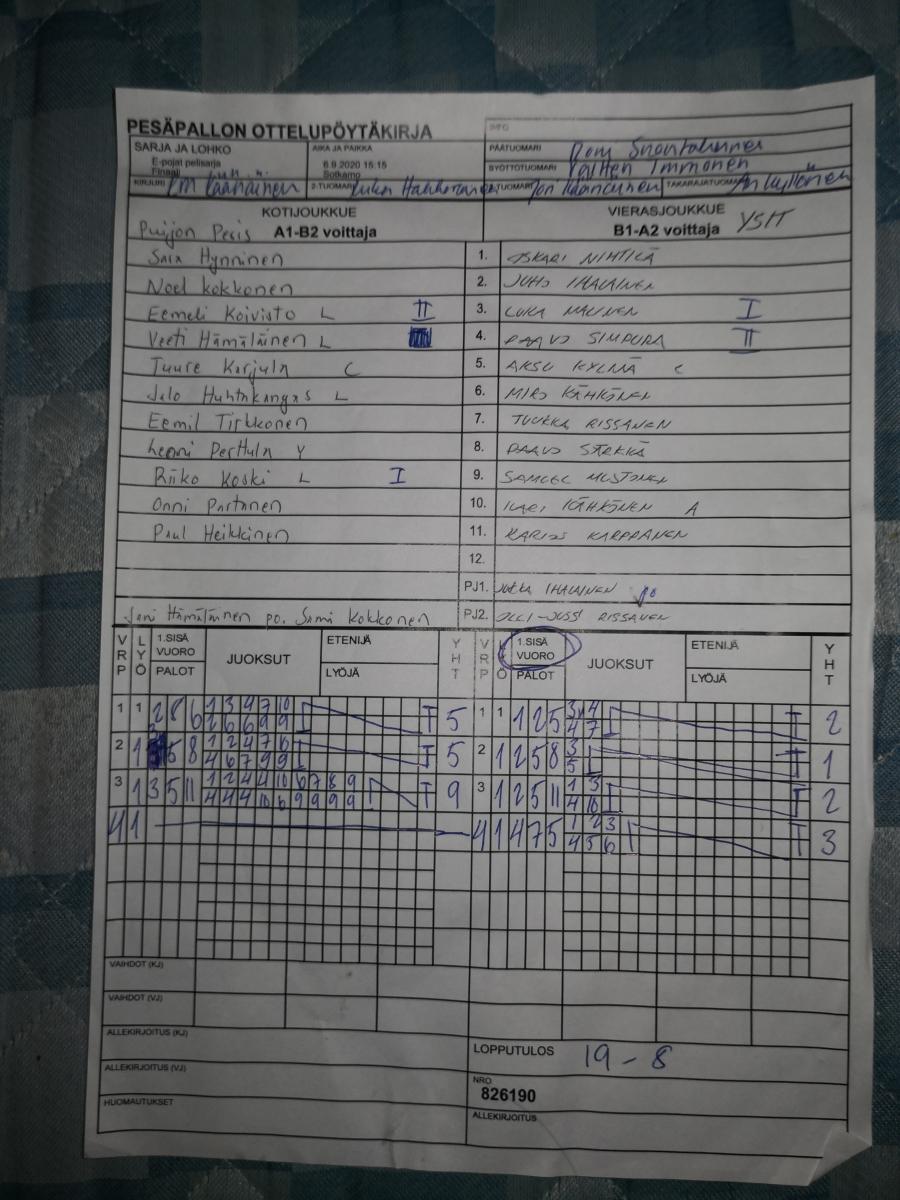 PESÄPALLON OTTELUPÖYTÄKIRJA
INFO
SARJA JA LOHKO
E-pojat pelisarja
Finaali
AIKA JA PAIKKA
6.9.2020 15:15
Sotkamo
PÄÄTUOMARI
SYÖTTÖTUOMARI Immonen
KIRJURI
2-TUOMARI
TAKARAJATUOMARI
KOTIJOUKKUE
Puijon Pesis A1-B2 voittaja
VIERASJOUKKUE
B1-A2 voittaja YSIT
Hynninen 1. OSKARI NIHTILÄ
Noel Kokkonen 2. JUHO IHALAINEN
Eemeli Koivisto L II 3. LUKA I
Veeti Hämäläinen L 4. PAAVO SIMPURA II
Tuure Karjula C 5. AKSU KYLMÄ C
Jalo Huhtakangas L 6. MIRO KÄHKÖNEN
Eemil Tirkkonen 7. TUUKKA RISSANEN
Leoni Perttula Y 8. PAAVO SÄRKKÄ
Riiko Koski L I 9. MUSTONEN
Onni Partanen 10. KÄHKÖNEN A
Paul Heikkinen 11. KARPPANEN
12.
PJ1. JUKKA IHALAINEN
Jani Hämäläinen po. Sami Kokkonen PJ2. OLLI-JUSSI RISSANEN
VRP LYÖ 1.SISÄ VUORO PALOT JUOKSUT ETENIJÄ LYÖJÄ YHT
VRP LYÖ 1.SISÄ VUORO PALOT JUOKSUT ETENIJÄ LYÖJÄ YHT
1 1 2 8 6 1 3 4 7 10 5
2 6 6 9 9
1 1 1 2 5 3 4 2
4 7
2 1 5 8 1 2 4 7 6 5
4 6 7 9 9
2 1 2 5 8 3 1
5
3 1 3 5 11 1 2 4 4 10 6 7 8 9 9
4 4 4 10 6 9 9 9 9
3 1 2 5 11 1 3 2
4 10
4 1
4 1 4 7 5 1 2 3 3
4 5 6
VAIHDOT (KJ)
VAIHDOT (VJ)
ALLEKIRJOITUS (KJ)
LOPPUTULOS 19 - 8
ALLEKIRJOITUS (VJ)
NRO
826190
HUOMAUTUKSET
ALLEKIRJOITUS